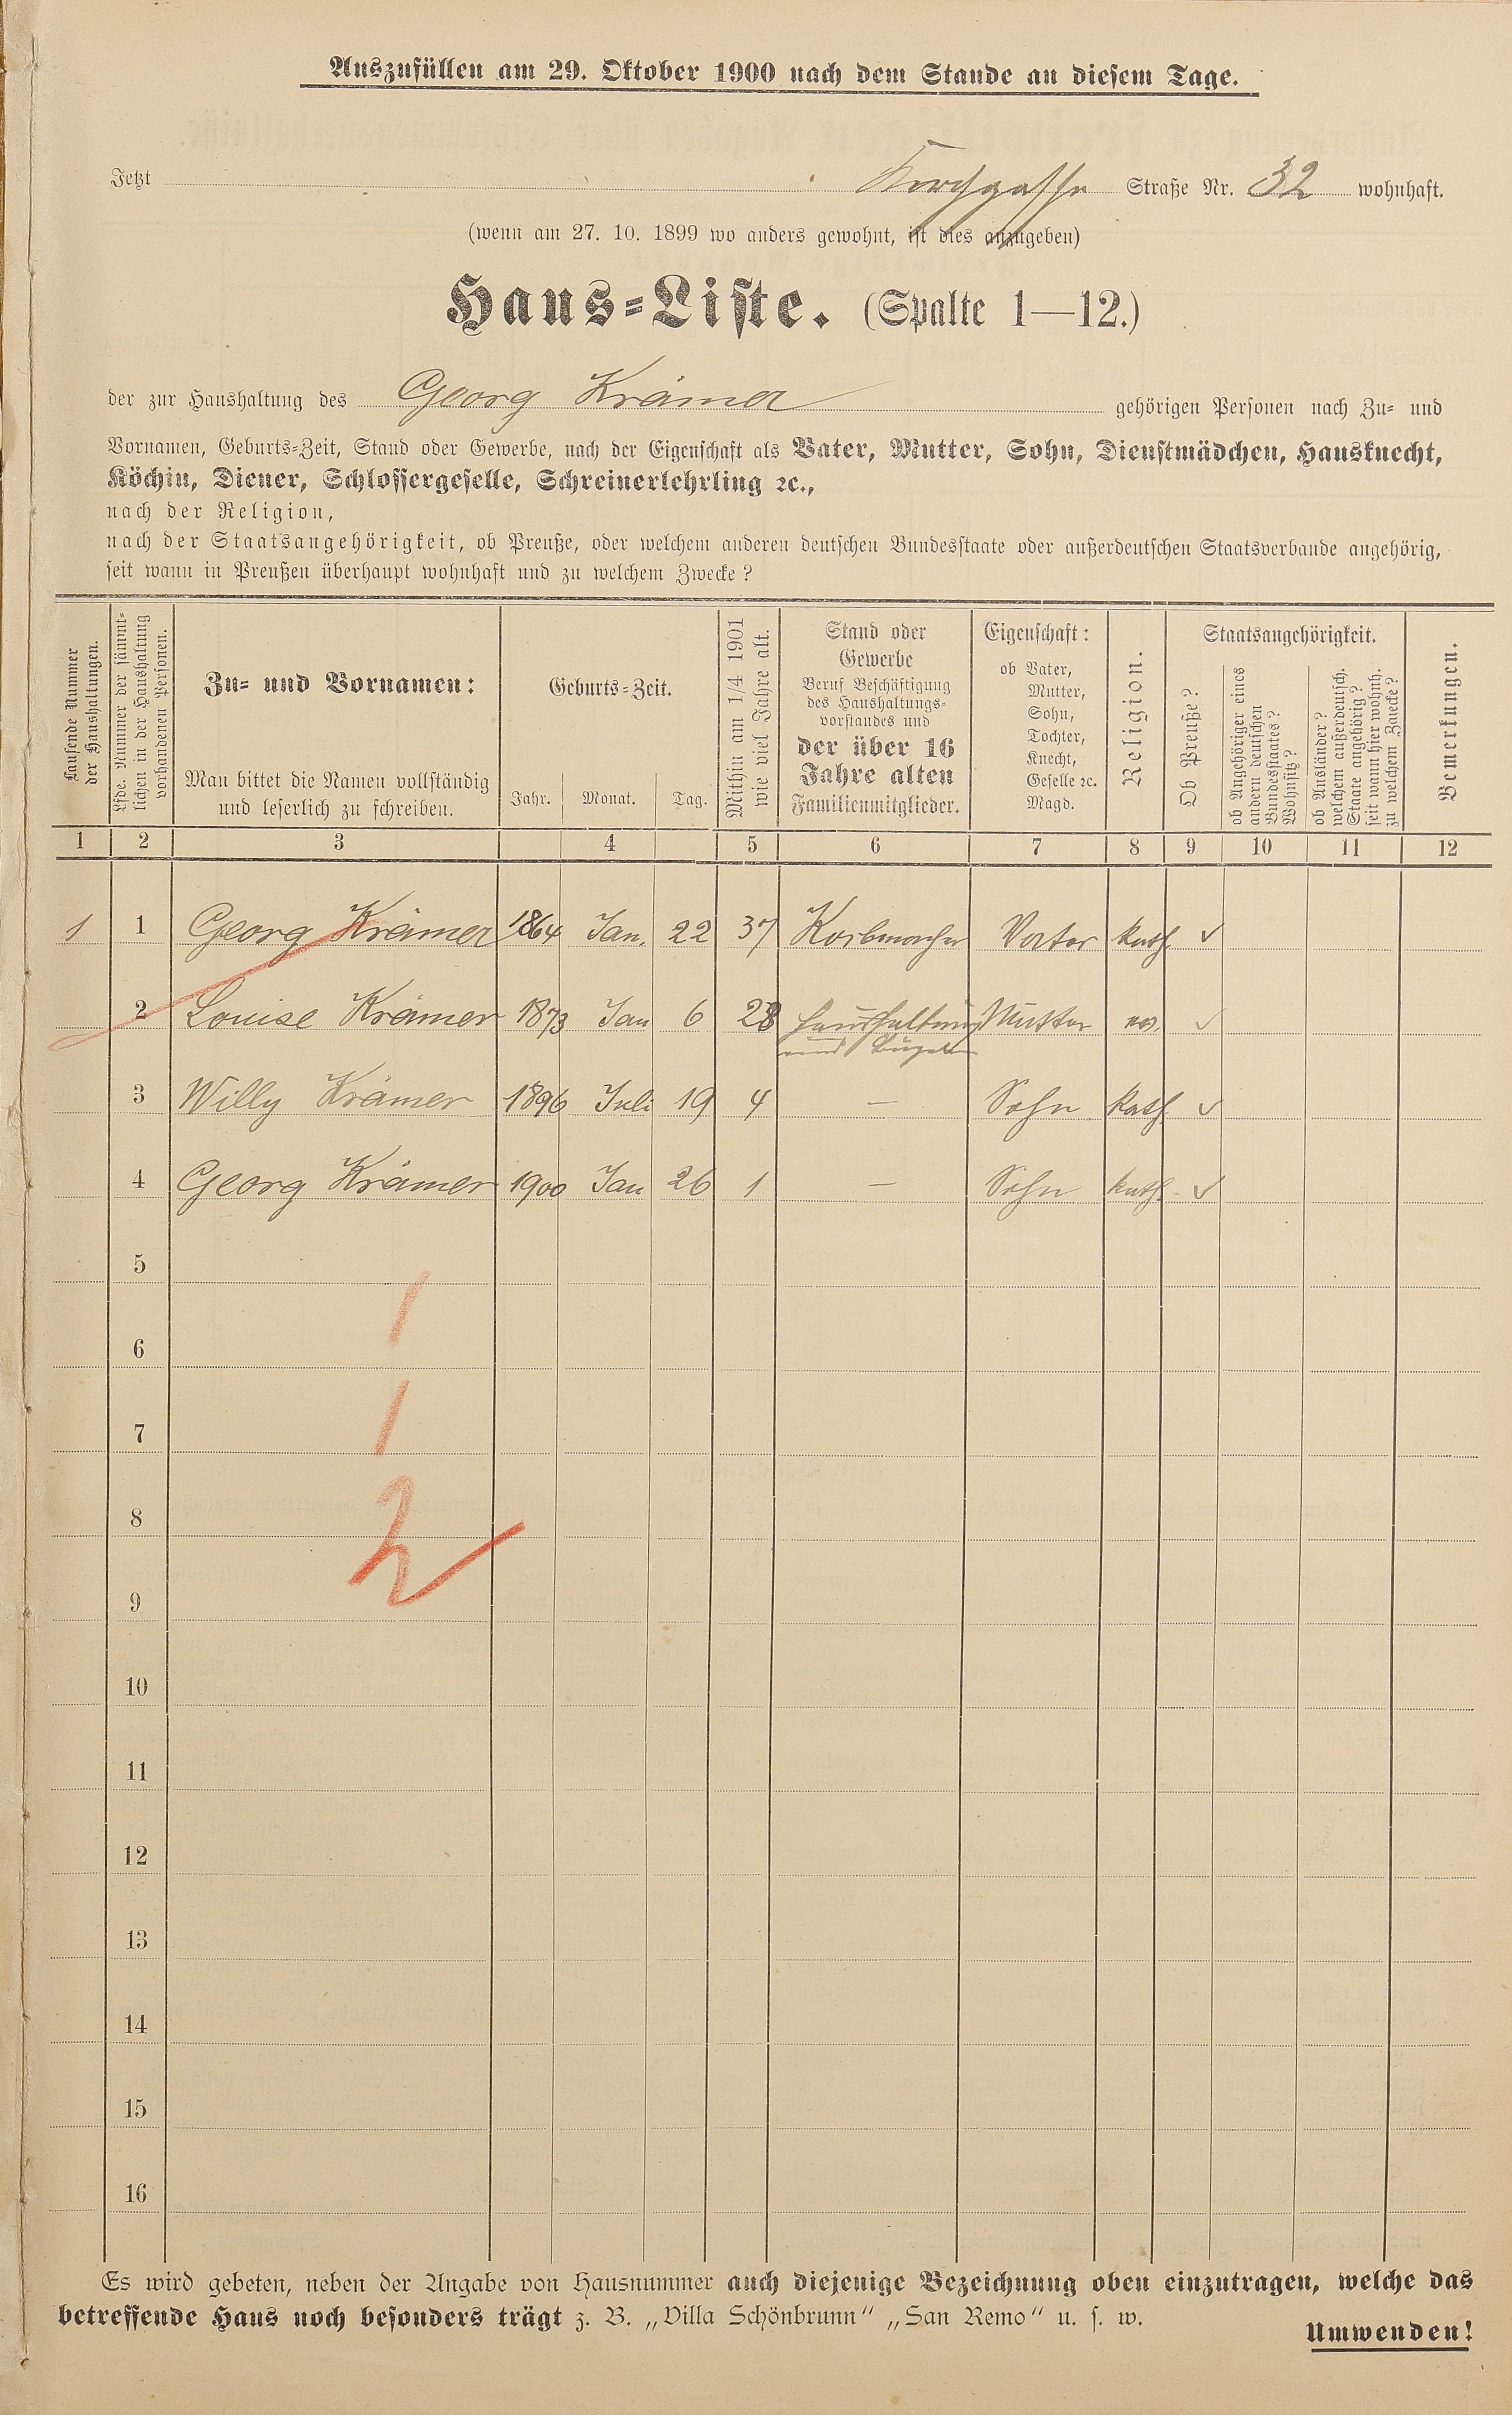 Auszufüllen am 29. Oktober 1900 nach dem Stande an diesem Tage.
Jetzt Kirchgasse Straße Nr. 32 wohnhaft.
(wenn am 27. 10. 1899 wo anders gewohnt, ist dies anzugeben)
Haus-Liste. (Spalte 1—12.)
der zur Haushaltung des Georg Krämer gehörigen Personen nach Zu- und
Vornamen, Geburts-Zeit, Stand oder Gewerbe, nach der Eigenschaft als Vater, Mutter, Sohn, Dienstmädchen, Hausknecht,
Köchin, Diener, Schlossergeselle, Schreinerlehrling ꝛc.,
nach der Religion,
nach der Staatsangehörigkeit, ob Preuße, oder welchem anderen deutschen Bundesstaate oder außerdeutschen Staatsverbande angehörig,
seit wann in Preußen überhaupt wohnhaft und zu welchem Zwecke?
Laufende Nummer
der Haushaltungen.
Lfde. Nummer der sämmt-
lichen in der Haushaltung
vorhandenen Personen.
Zu- und Vornamen:
Man bittet die Namen vollständig
und leserlich zu schreiben.
Geburts-Zeit.
Jahr. Monat. Tag.
Mithin am 1/4 1901
wie viel Jahre alt.
Stand oder
Gewerbe
Beruf Beschäftigung
des Haushaltungs-
vorstandes und
der über 16
Jahre alten
Familienmitglieder.
Eigenschaft:
ob Vater,
Mutter,
Sohn,
Tochter,
Knecht,
Geselle ꝛc.
Magd.
Religion.
Staatsangehörigkeit.
Ob Preuße?
ob Angehöriger eines
andern deutschen
Bundesstaates?
Wohnsitz?
ob Ausländer?
welchem außerdeutsch.
Staate angehörig?
seit wann hier wohnh.
zu welchem Zwecke?
Bemerkungen.
1 2 3 4 5 6 7 8 9 10 11 12
1 1 Georg Krämer 1864 Jan. 22 37 Korbmacher Vater kath. ✓
2 Louise Krämer 1873 Jan 6 28 Haushaltung Mutter ev. ✓
und Bügeln
3 Willy Krämer 1896 Juli 19 4 — Sohn kath. ✓
4 Georg Krämer 1900 Jan 26 1 — Sohn kath. ✓
5
1
6
7
1
8
2
9
10
11
12
13
14
15
16
Es wird gebeten, neben der Angabe von Hausnummer auch diejenige Bezeichnung oben einzutragen, welche das
betreffende Haus noch besonders trägt z. B. „Villa Schönbrunn“ „San Remo“ u. s. w.
Umwenden!